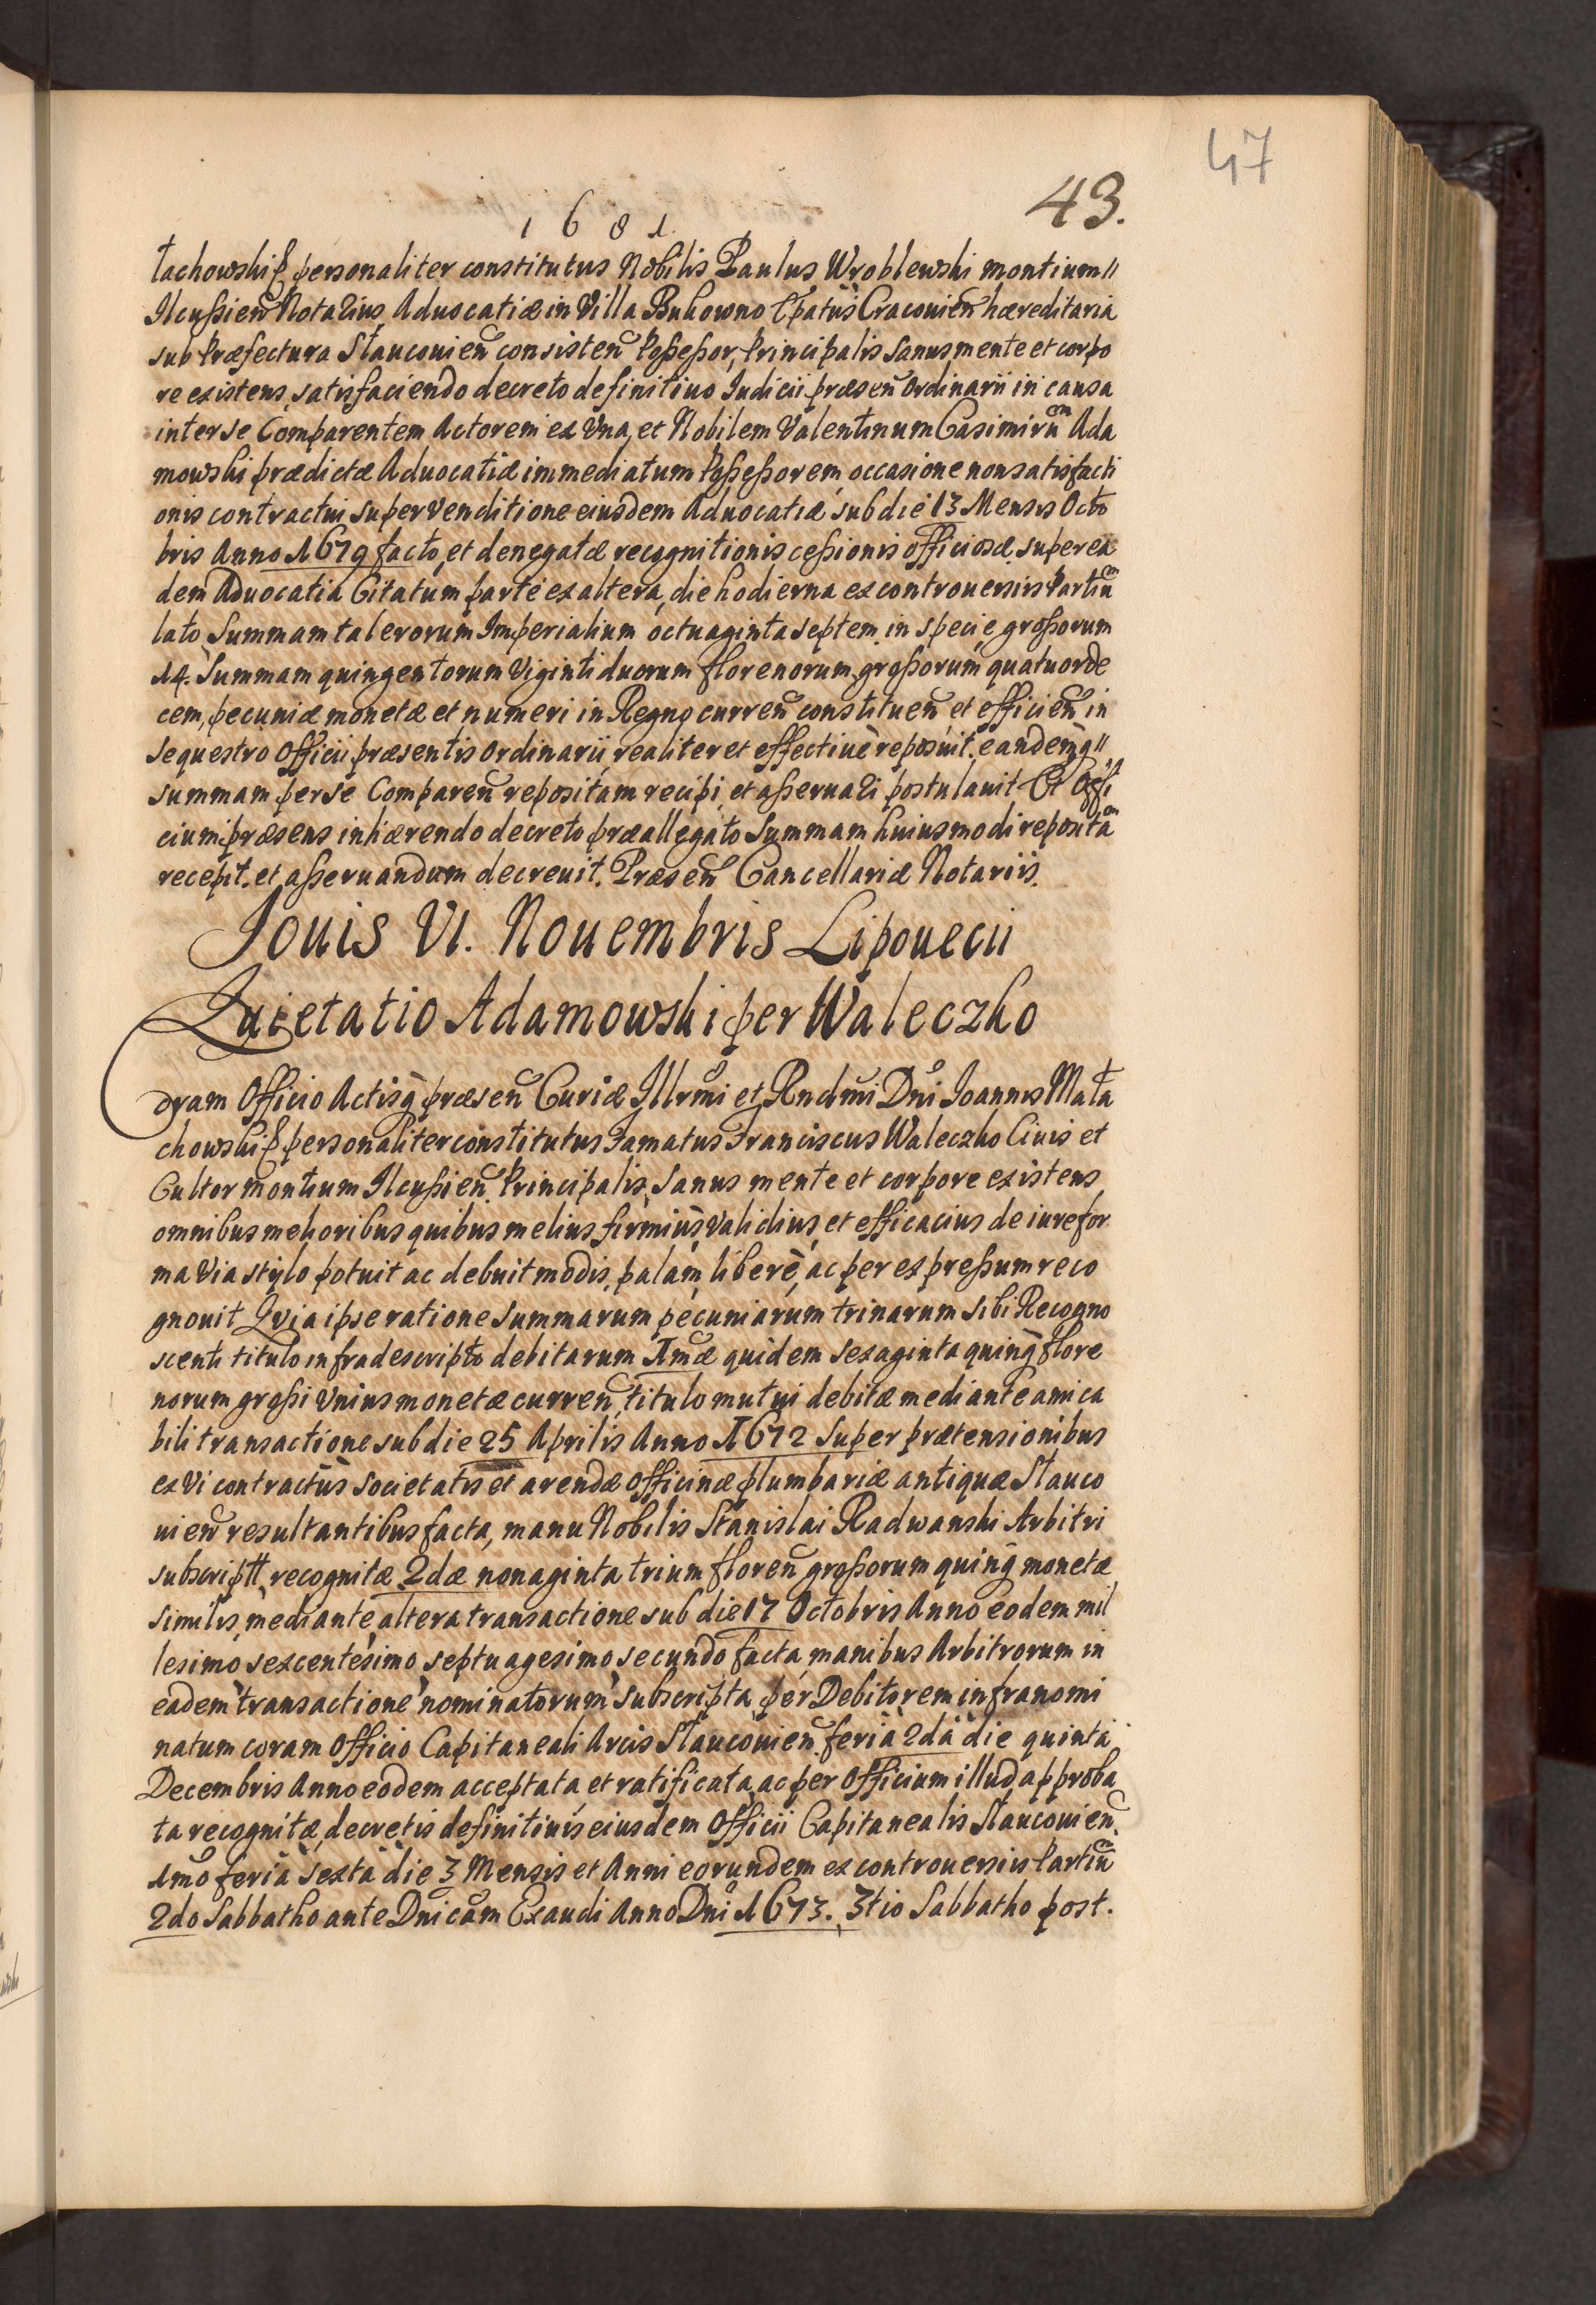 47
43.
1681
łachowski personaliter constitutus Nobilis Paulus Wroblewski montium
Ilcussien̄ Notarius, Aduocatiæ in Villa Bukowno Ep̄atus Cracouien̄ hæreditaria
sub Præfectura Slauconien̄ consisten̄ Possessor, Principalis Sanus mente et corpo
re existens, satisfaciendo decreto definitiuo Iudicii præsen̄ Ordinarii in causa
inter se Comparentem Actorem ex Vna, et Nobilem Valentinum Casimirū Ada
mowski prædictæ Aduocatiæ immediatum Possessorem, occasione non satisfacti
onis contractui super venditione eiusdem Aduocatiæ sub die 13 Mensis Octo
bris Anno 1679 facto, et denegatæ recognitionis cessionis officiosæ super ea
dem Aduocatia Citatum parte ex altera, die hodierna ex controuersiis Partiū
lato Summam talerorum Imperialium octuaginta septem in specie grossorum
14. Summam quingentorum Viginti duorum florenorum, grossorum quatuorde
cem, pecuniæ monetæ et numeri in Regno curren̄ constituen̄ et efficien̄ in
sequestro Officii præsentis Ordinarii, realiter et effectiuè reposuit. eandemq̄
summam per se Comparen̄ repositam recipi, et asseruari postulauit Et Offi
cium præsens inhærendo decreto præallegato Summam huiusmodi repositā
recepit. et asseruandum decreuit. Præsen̄ Cancellariæ Notariis.
Iouis VI. Nouembris Lipouecii
Quietatio Adamowski per Waleczko
Coram Officio Actisq̄ præsen̄ Curiæ Illrm̄i et Rndm̄i Dn̄i Ioannis Mała
chowski personaliter constitutus Famatus Franciscus Waleczko Ciuis et
Cultor Montium Ilcussien̄ Principalis, Sanus mente et corpore existens
omnibus melioribus quibus melius firmius, validius, et efficacius de iure for
ma via stylo potuit ac debuit modis, palàm, liberè, ac per expressum reco
gnouit Quia ipse ratione Summarum pecuniarum trinarum sibi Recogno
scenti titulo infradescripto debitarum 1mæ quidem sexaginta quinq̄ flore
norum grossi Vnius monetæ curren̄, titulo mutui debitæ mediante amica
bili transactione sub die 25 Aprilis Anno 1672 Super prætensionibus
ex Vi contractus societatis et arendæ Officinæ plumbariæ antiquæ Slauco
uien̄ resultantibus facta, manu Nobilis Stanislai Radwanski Arbitri
subscriptt, recognitæ 2dæ nonaginta trium floren̄ grossorum quinq̄ monetæ
similis, mediante altera transactione sub die 17 Octobris Anno eodem mil
lesimo sexcentesimo septuagesimo secundo facta, manibus Arbitrorum in
eadem transactione nominatorum subscripta, per Debitorem infranomi
natum coram Officio Capitaneali Arcis Slauconien̄ feria 2dà die quinta
Decembris Anno eodem acceptata, et ratificata, ac per Officium illud approba
ta recognitæ, decretis definitiuis eiusdem Officii Capitanealis Slauconien̄.
1mo feria sexta die 3 Mensis et Anni eorundem ex controuersiis Partiū
2do Sabbatho ante Dn̄icam Exaudi Anno Dn̄i 1673. 3tio Sabbatho post.